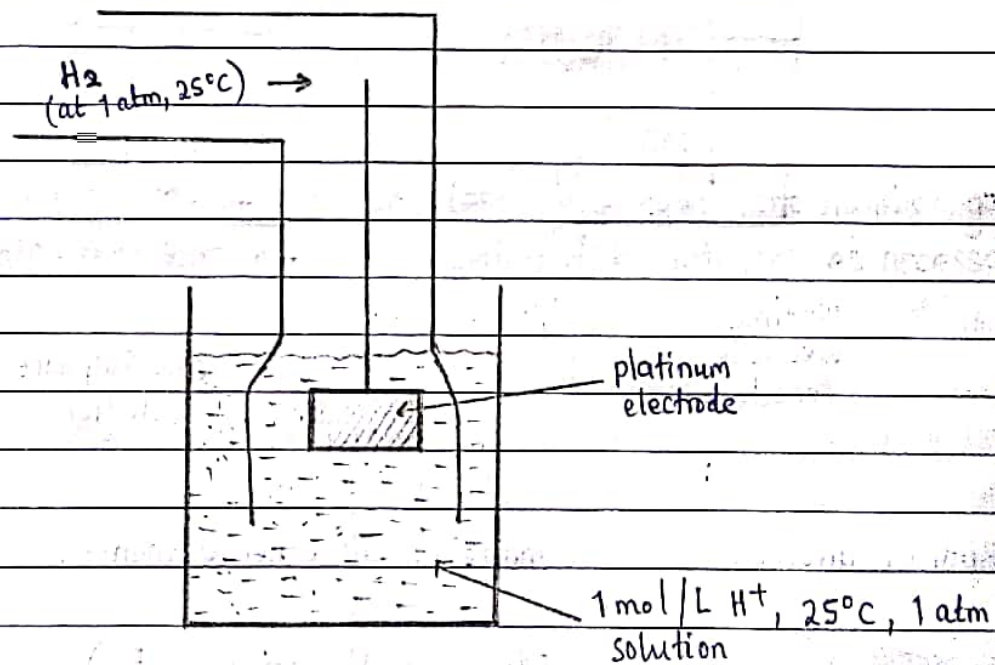 H2
(at 1 atm, 25°C) →
platinum
electrode
1 mol/L H+, 25°C, 1 atm
solution